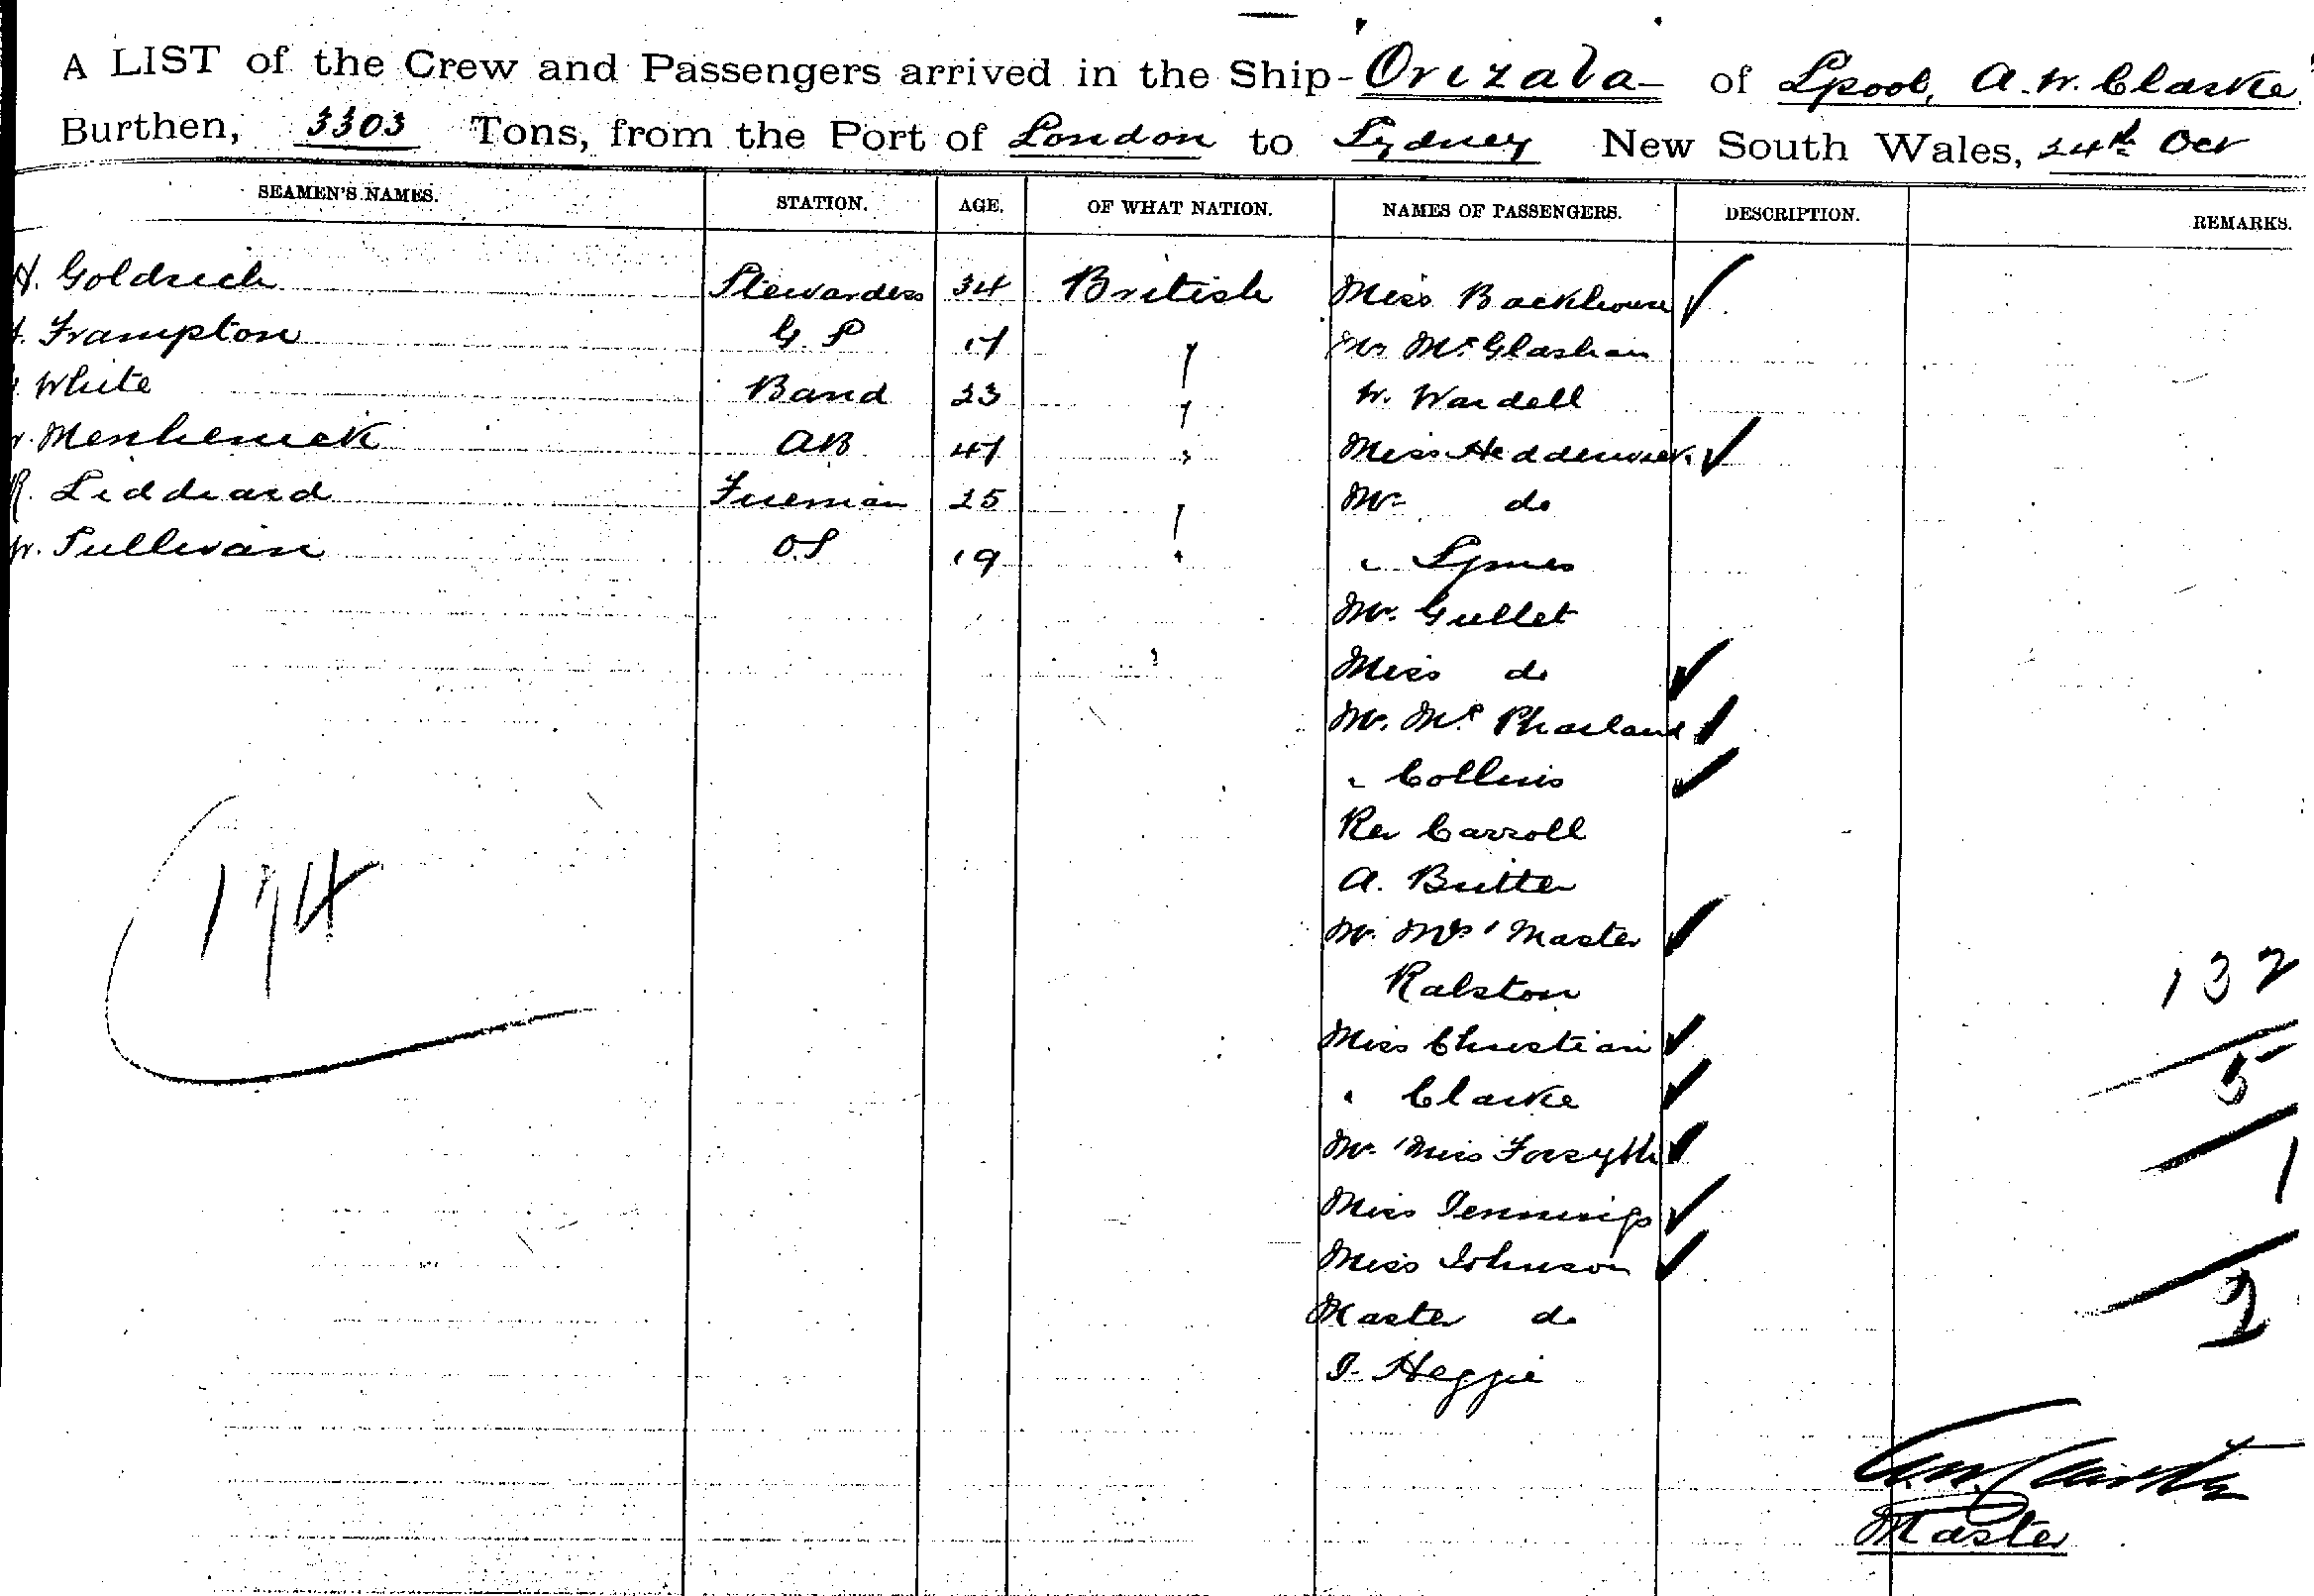 A LIST of the Crew and Passengers arrived in the Ship - Orizaba - of Lpool, A. W. Clarke
Burthen, 3303 Tons, from the Port of London to Sydney New South Wales, 24th Oct
SEAMEN'S NAMES. STATION. AGE. OF WHAT NATION. NAMES OF PASSENGERS. DESCRIPTION. REMARKS.
H. Goldrich Stewardess 34 British Miss Backhouse ✓
Frampton G. S 17 " Mr McGlashan
White Band 23 " W. Wardell
Menhenick AB 47 " Miss Hedderwick ✓
R. Liddeard Fireman 25 " Mr do
W. Sullivan O.S 19 " " Symes
Mr. Gullet
Miss do ✓
Mr. Mc Pharland ✓
" Collins ✓
Rev Carroll
A. Butter
Mr. Mrs & Master ✓
Ralston
Miss Christian ✓
" Clarke ✓
Mr. & Miss Forsyth ✓
Miss Jennings ✓
Miss Johnson ✓
Master do
J. Heggie
174
132
5
1
2
Master